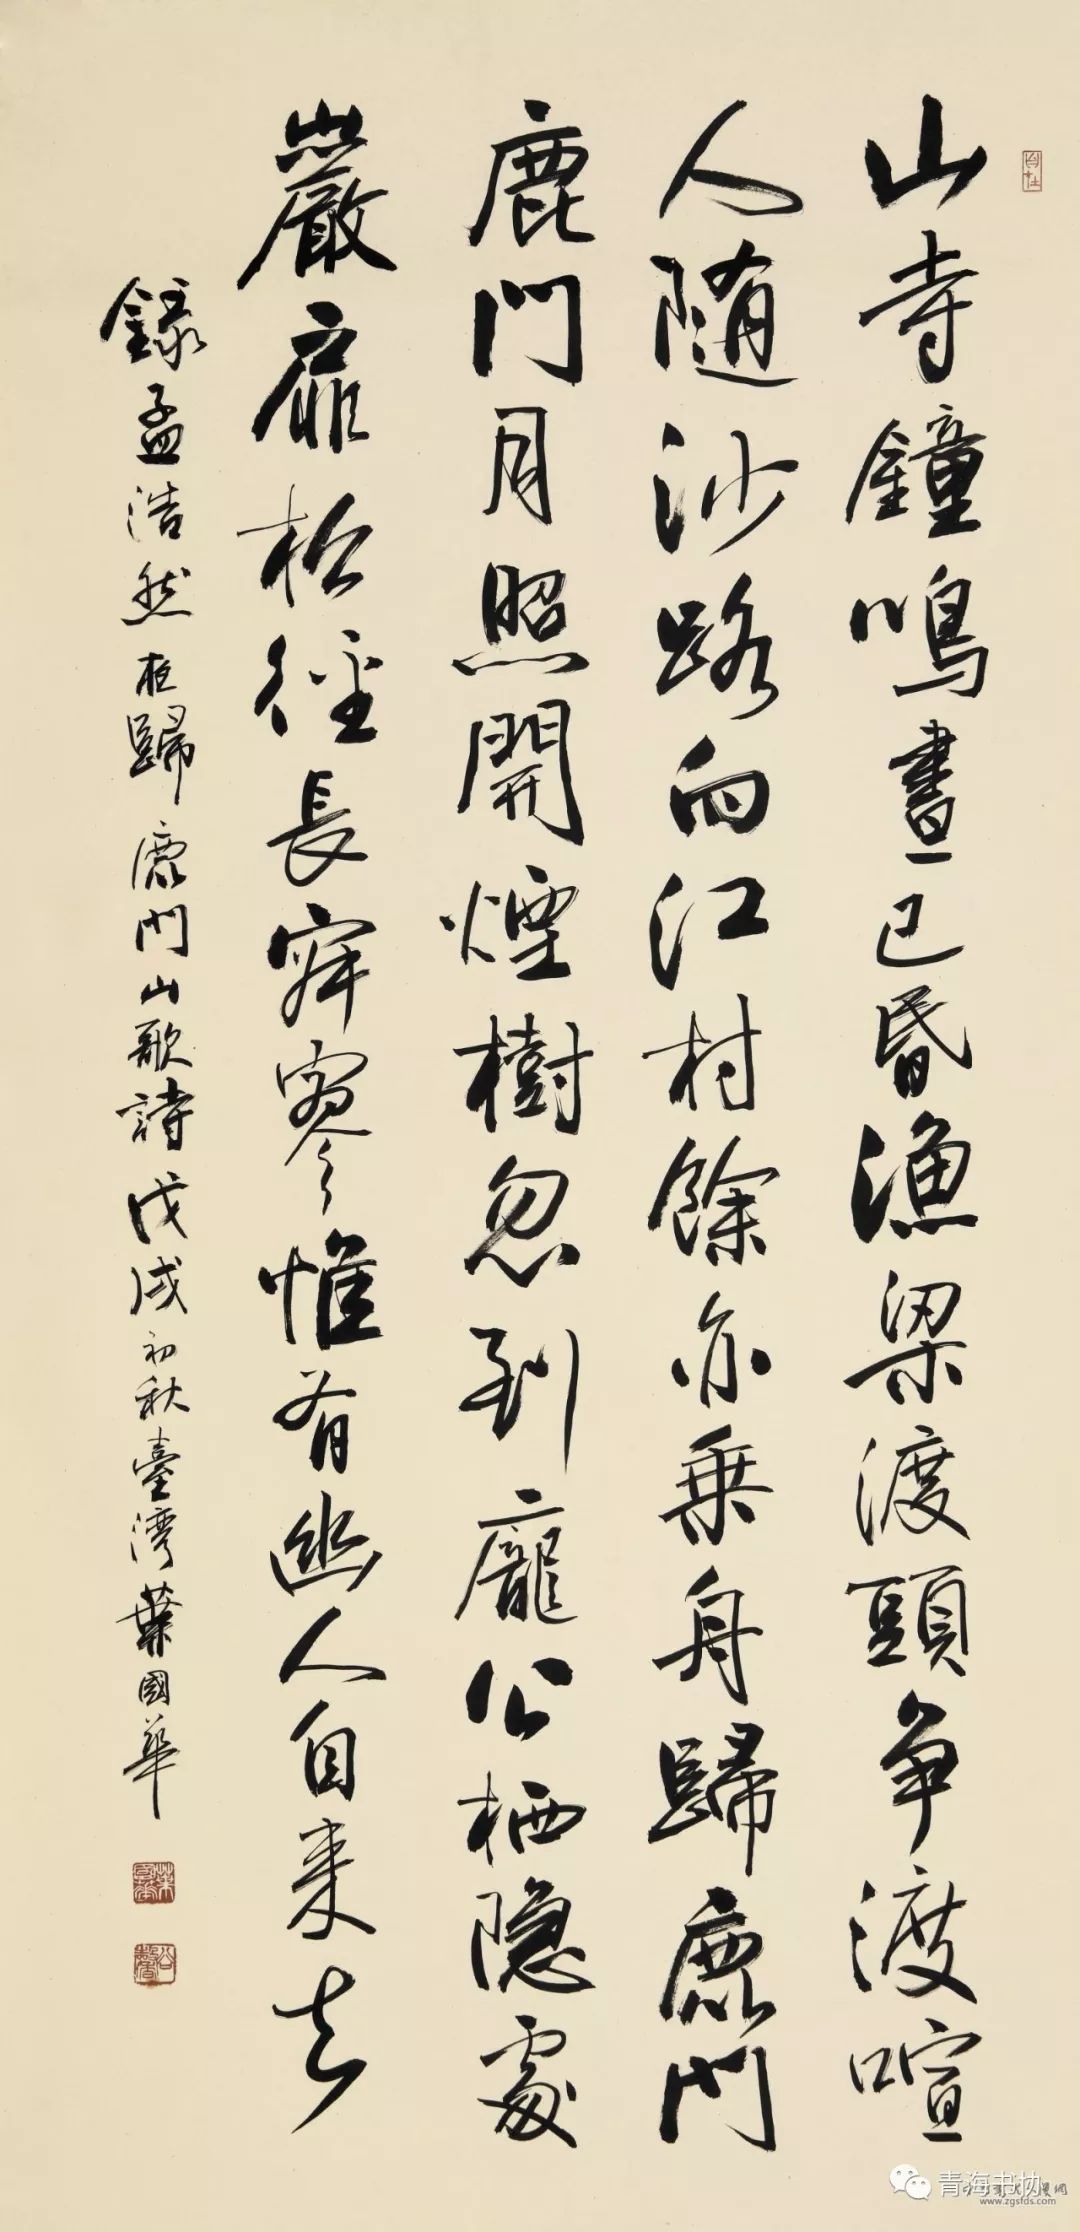 山寺鐘鳴晝已昏漁梁渡頭争渡喧
人随沙路向江村餘亦乗舟歸鹿門
鹿門月照開煙樹忽到龐公栖隐處
巖扉松徑長寂寥惟有幽人自来去
錄孟浩然夜歸鹿門山歌詩戊戌初秋臺灣葉國華
青海书协
www.zgsfds.com